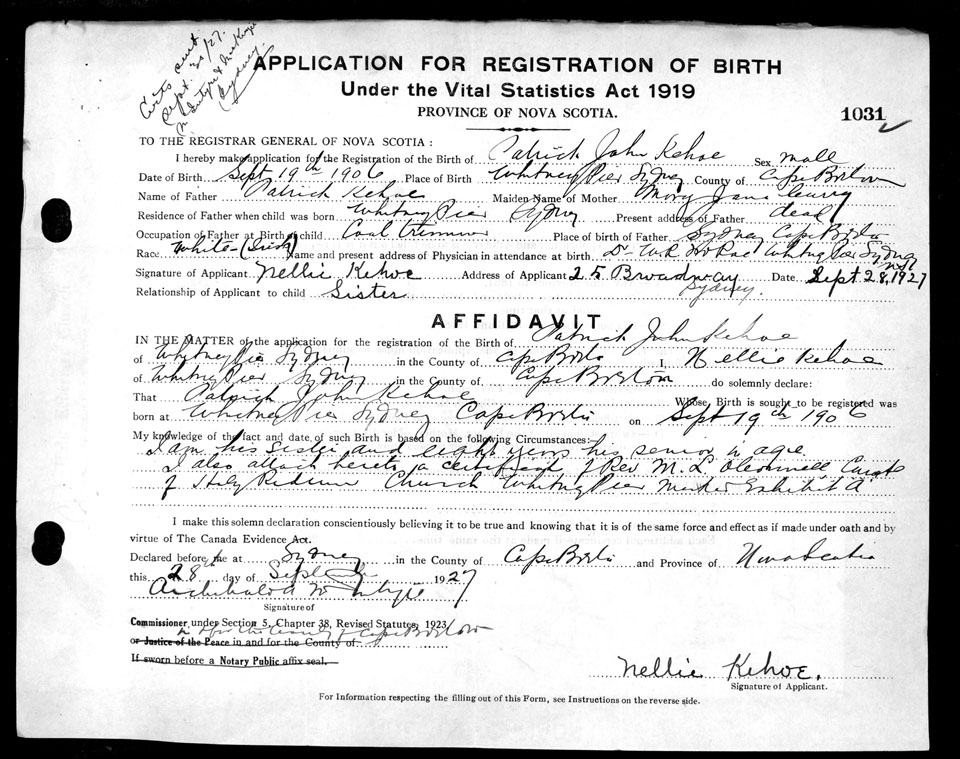 Certs sent
Sept. 30/27.
McIntyre & MacKenzie
Sydney.
APPLICATION FOR REGISTRATION OF BIRTH
Under the Vital Statistics Act 1919
PROVINCE OF NOVA SCOTIA.
1031
TO THE REGISTRAR GENERAL OF NOVA SCOTIA :
I hereby make application for the Registration of the Birth of Patrick John Kehoe Sex male
Date of Birth Sept 19th 1906 Place of Birth Whitney Pier Sydney County of Cape Breton
Name of Father Patrick Kehoe Maiden Name of Mother Mary Jane
Residence of Father when child was born Whitney Pier Sydney Present address of Father dead
Occupation of Father at Birth of child Coal trimmer Place of birth of Father Sydney Cape Breton
Race White (Irish) Name and present address of Physician in attendance at birth Dr Whitney Pier Sydney
Signature of Applicant Nellie Kehoe Address of Applicant 25 Broadway Sydney. Date Sept 28, 1927
Relationship of Applicant to child Sister
AFFIDAVIT
IN THE MATTER of the application for the registration of the Birth of Patrick John Kehoe
of Whitney Pier Sydney in the County of Cape Breton I, Nellie Kehoe
of Whitney Pier Sydney in the County of Cape Breton do solemnly declare:
That Patrick John Kehoe Whose Birth is sought to be registered was
born at Whitney Pier Sydney Cape Breton on Sept 19th 1906
My knowledge of the fact and date of such Birth is based on the following Circumstances:
I am his sister and eight years his senior in age
I also attach hereto a certificate of Rev. M. L. Curate
of Holy Redeemer Church Whitney Pier Marked Exhibit A
I make this solemn declaration conscientiously believing it to be true and knowing that it is of the same force and effect as if made under oath and by
virtue of The Canada Evidence Act.
Declared before me at Sydney in the County of Cape Breton and Province of Nova Scotia
this 28th day of September 1927
Archibald McIntyre
Signature of
Commissioner under Section 5, Chapter 38, Revised Statutes, 1923
in & for the County of Cape Breton
or Justice of the Peace in and for the County of
If sworn before a Notary Public affix seal.
Nellie Kehoe.
Signature of Applicant.
For Information respecting the filling out of this Form, see Instructions on the reverse side.